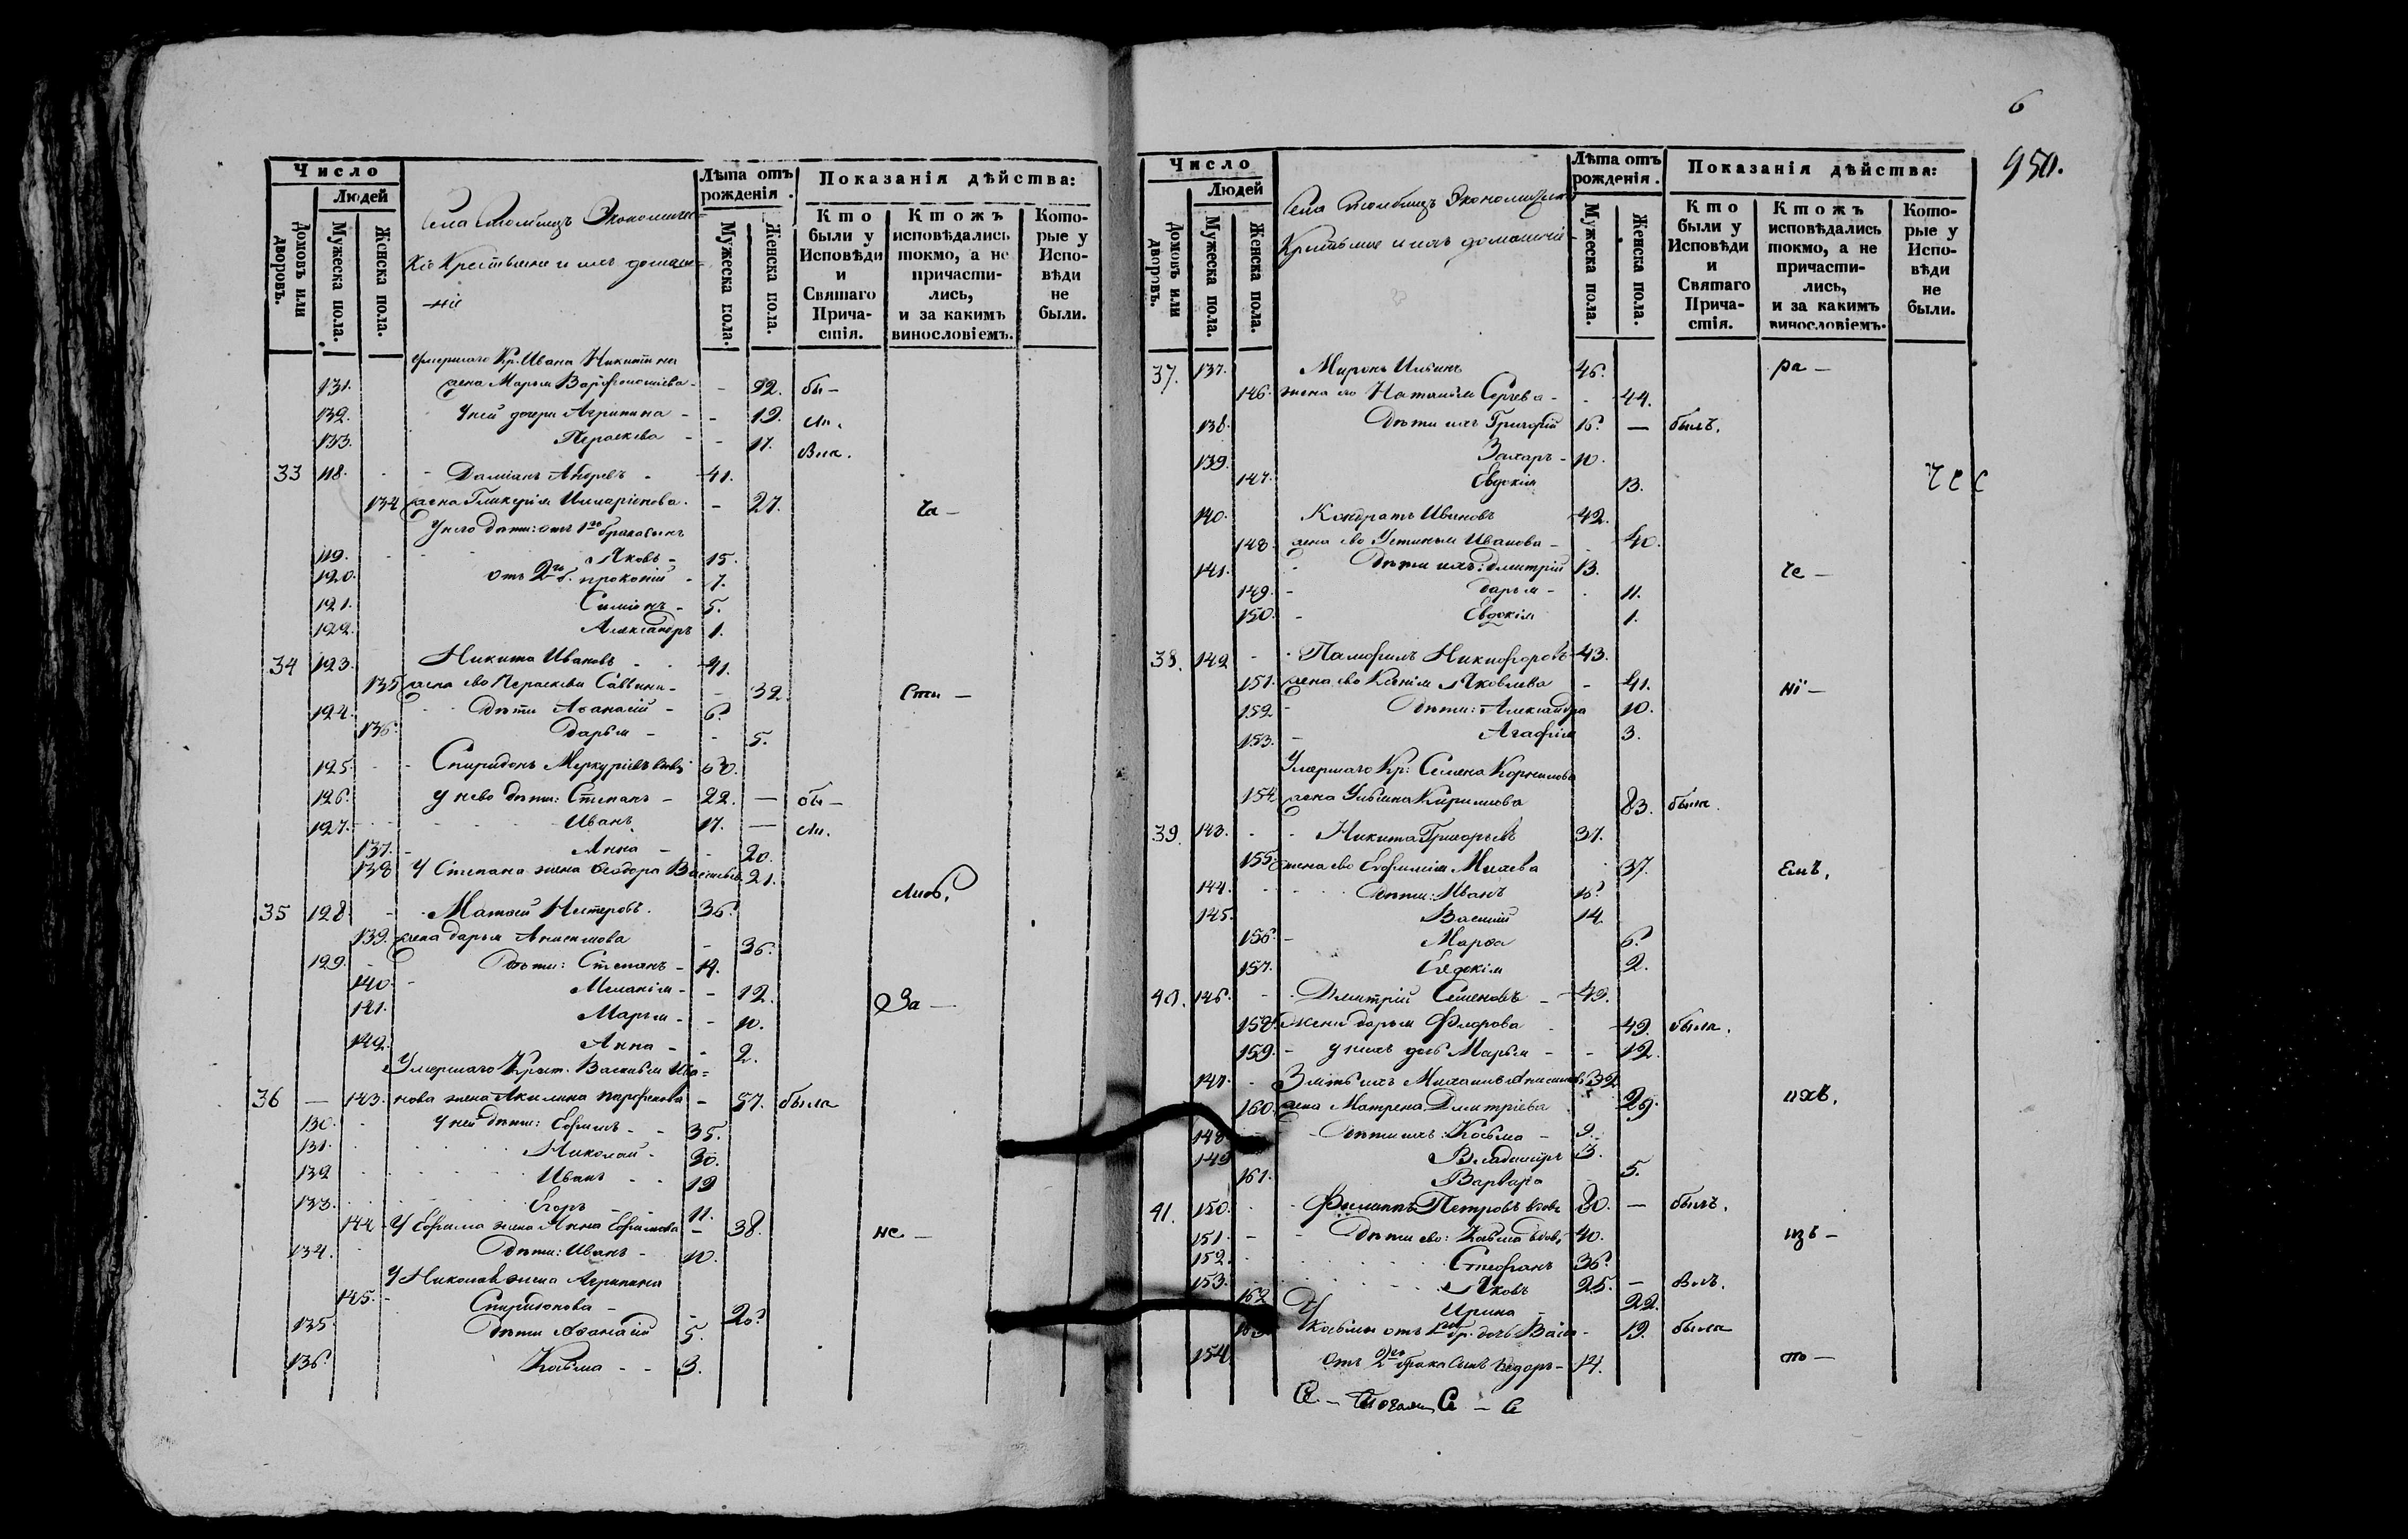 Число
Людей
Домовъ или дворовъ.
Мужеска пола.
Женска пола.
Села Столбищъ Экономичес=
кіе Крестьяне и ихъ домаш=
-ніе
Лѣта отъ рожденія.
Мужеска пола.
Женска пола.
Показанія дѣйства:
Кто были у Исповѣди и Святаго Причастія.
Ктожъ исповѣдались токмо, а не причастились, и за какимъ винословіемъ.
Которые у Исповѣди не были.
умершаго Кр. Ивана Никитина
131. жена Марья - - 52. бы-
132. У ней дочери Агрипина - - 12. ли.
133. Пераскева - - 17. вша.
33 118. Даміанъ Андреевъ - 41.
134 жена Гликерія Илларіонова. - 27. ча-
У него дѣти: отъ 1го брака сынъ
119. Яковъ - 15.
120. отъ 2го б. прокопій - 7.
121. Симіонъ - 5.
122. Александръ 1.
34 123. Никита Ивановъ - 41.
135 жена ево Пераскева Саввина - - 32. сти-
124. дѣти Аѳанасій - 6.
136. Дарья - - 5.
125. Спиридонъ Меркуріевъ вдовъ 60.
126. у нево дѣти: Степанъ - 22. — бы-
127. Иванъ 17. — ли.
137. Анна - - 20.
138 У Степана жена Ѳеодора Васильева 21.
лись.
35 128 Матѳей Нестеровъ. 36.
139. жена дарья Анисимова - 36.
129. дѣти: Степанъ - 14.
140. Меланія - - 12. За-
141. Марья - - 10.
142. Анна - - 2.
Умершаго Крест. Василья Ива=
36 — 143. нова жена Акилина парфенова - 57. была
130. У ней дѣти: Ефимъ - - 35.
131. Николай - 30.
132 Иванъ - - 19
133. Егоръ - - 11.
144 У Ефима жена Анна Ефимова - 38. не-
134. дѣти: Иванъ - 10.
У Николая жена Агрипина
145. Спиридонова - - 26.
135. дѣти Аѳанасій 5.
136. Козьма - - 3.
6
950.
Число
Людей
Домовъ или дворовъ.
Мужеска пола.
Женска пола.
Села Столбищъ Экономическіе
Крестьяне и ихъ домашніе
Лѣта отъ рожденія.
Мужеска пола.
Женска пола.
Показанія дѣйства:
Кто были у Исповѣди и Святаго Причастія.
Ктожъ исповѣдались токмо, а не причастились, и за какимъ винословіемъ.
Которые у Исповѣди не были.
37. 137. Миронъ Ильинъ 46. ра-
146. жена его Наталія Сергева - - 44.
138. Дѣти ихъ Григорій 16. — былъ.
139. Захаръ - 10.
147. Евдокія 13.
140. Кондратъ Ивановъ 42.
148. жена ево Устинья Иванова - - 40.
141. Дѣти ихъ: дмитрій 13. че-
149. - дарья - 11.
150. - Евдокія 1.
38. 142 Памфилъ Никифоровъ 43.
151. жена ево Ксенія Яковлева - 41. нї-
152 - дѣти: Александра 10.
153. - Агафія 3.
Умершаго Кр: Семена Корнилова
154 жена Ульяна Кирилова 83. была.
39. 143. Никита Григорьевъ 37.
155. жена ево Евфимія Михева 37. емъ.
144. дѣти: Иванъ 16.
145. Василій 14.
156. - Марѳа 6.
157. Евдокія 2.
40. 146. Дмитрій Семеновъ - 49.
158. жена дарья Фле­рова 49. была.
159. - у нихъ дочь Марья - - 12.
147. Зять ихъ Михаилъ Анисимовъ 32
160. жена Матрена Дмитріева 29. ихъ.
148 Дѣти ихъ: Козьма - 9.
149 Владимиръ 3.
161. Варвара - 5.
41. 150. Филиппъ Петровъ вдовъ 80. — былъ.
151. - - Дѣти ево: Козьма вдовъ 40. изъ-
152. Стефанъ 36.
153. Яковъ 25. —
162 Ирина - 22.
У козьмы отъ 1го бр. дочь - 19. была
154 отъ 2го брака сынъ Ѳедоръ - 14. то-